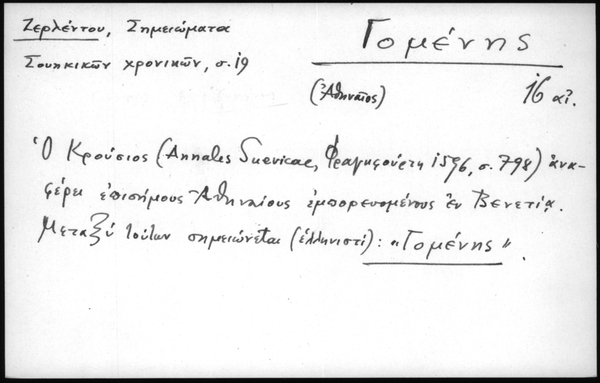 Ζερλέντου, Σημειώματα
Σουηκικῶν χρονικῶν, σ. 19
Γομένης
(Ἀθηναῖος)
16 αἰ.
Ὁ Κρούσιος (Annales Suevicae, Φραγκφούρτη 1596, σ. 798) ἀνα-
φέρει ἐπισήμους Ἀθηναίους ἐμπορευομένους ἐν Βενετίᾳ.
Μεταξύ τούτων σημειώνεται (ἑλληνιστί): «Γομένης».